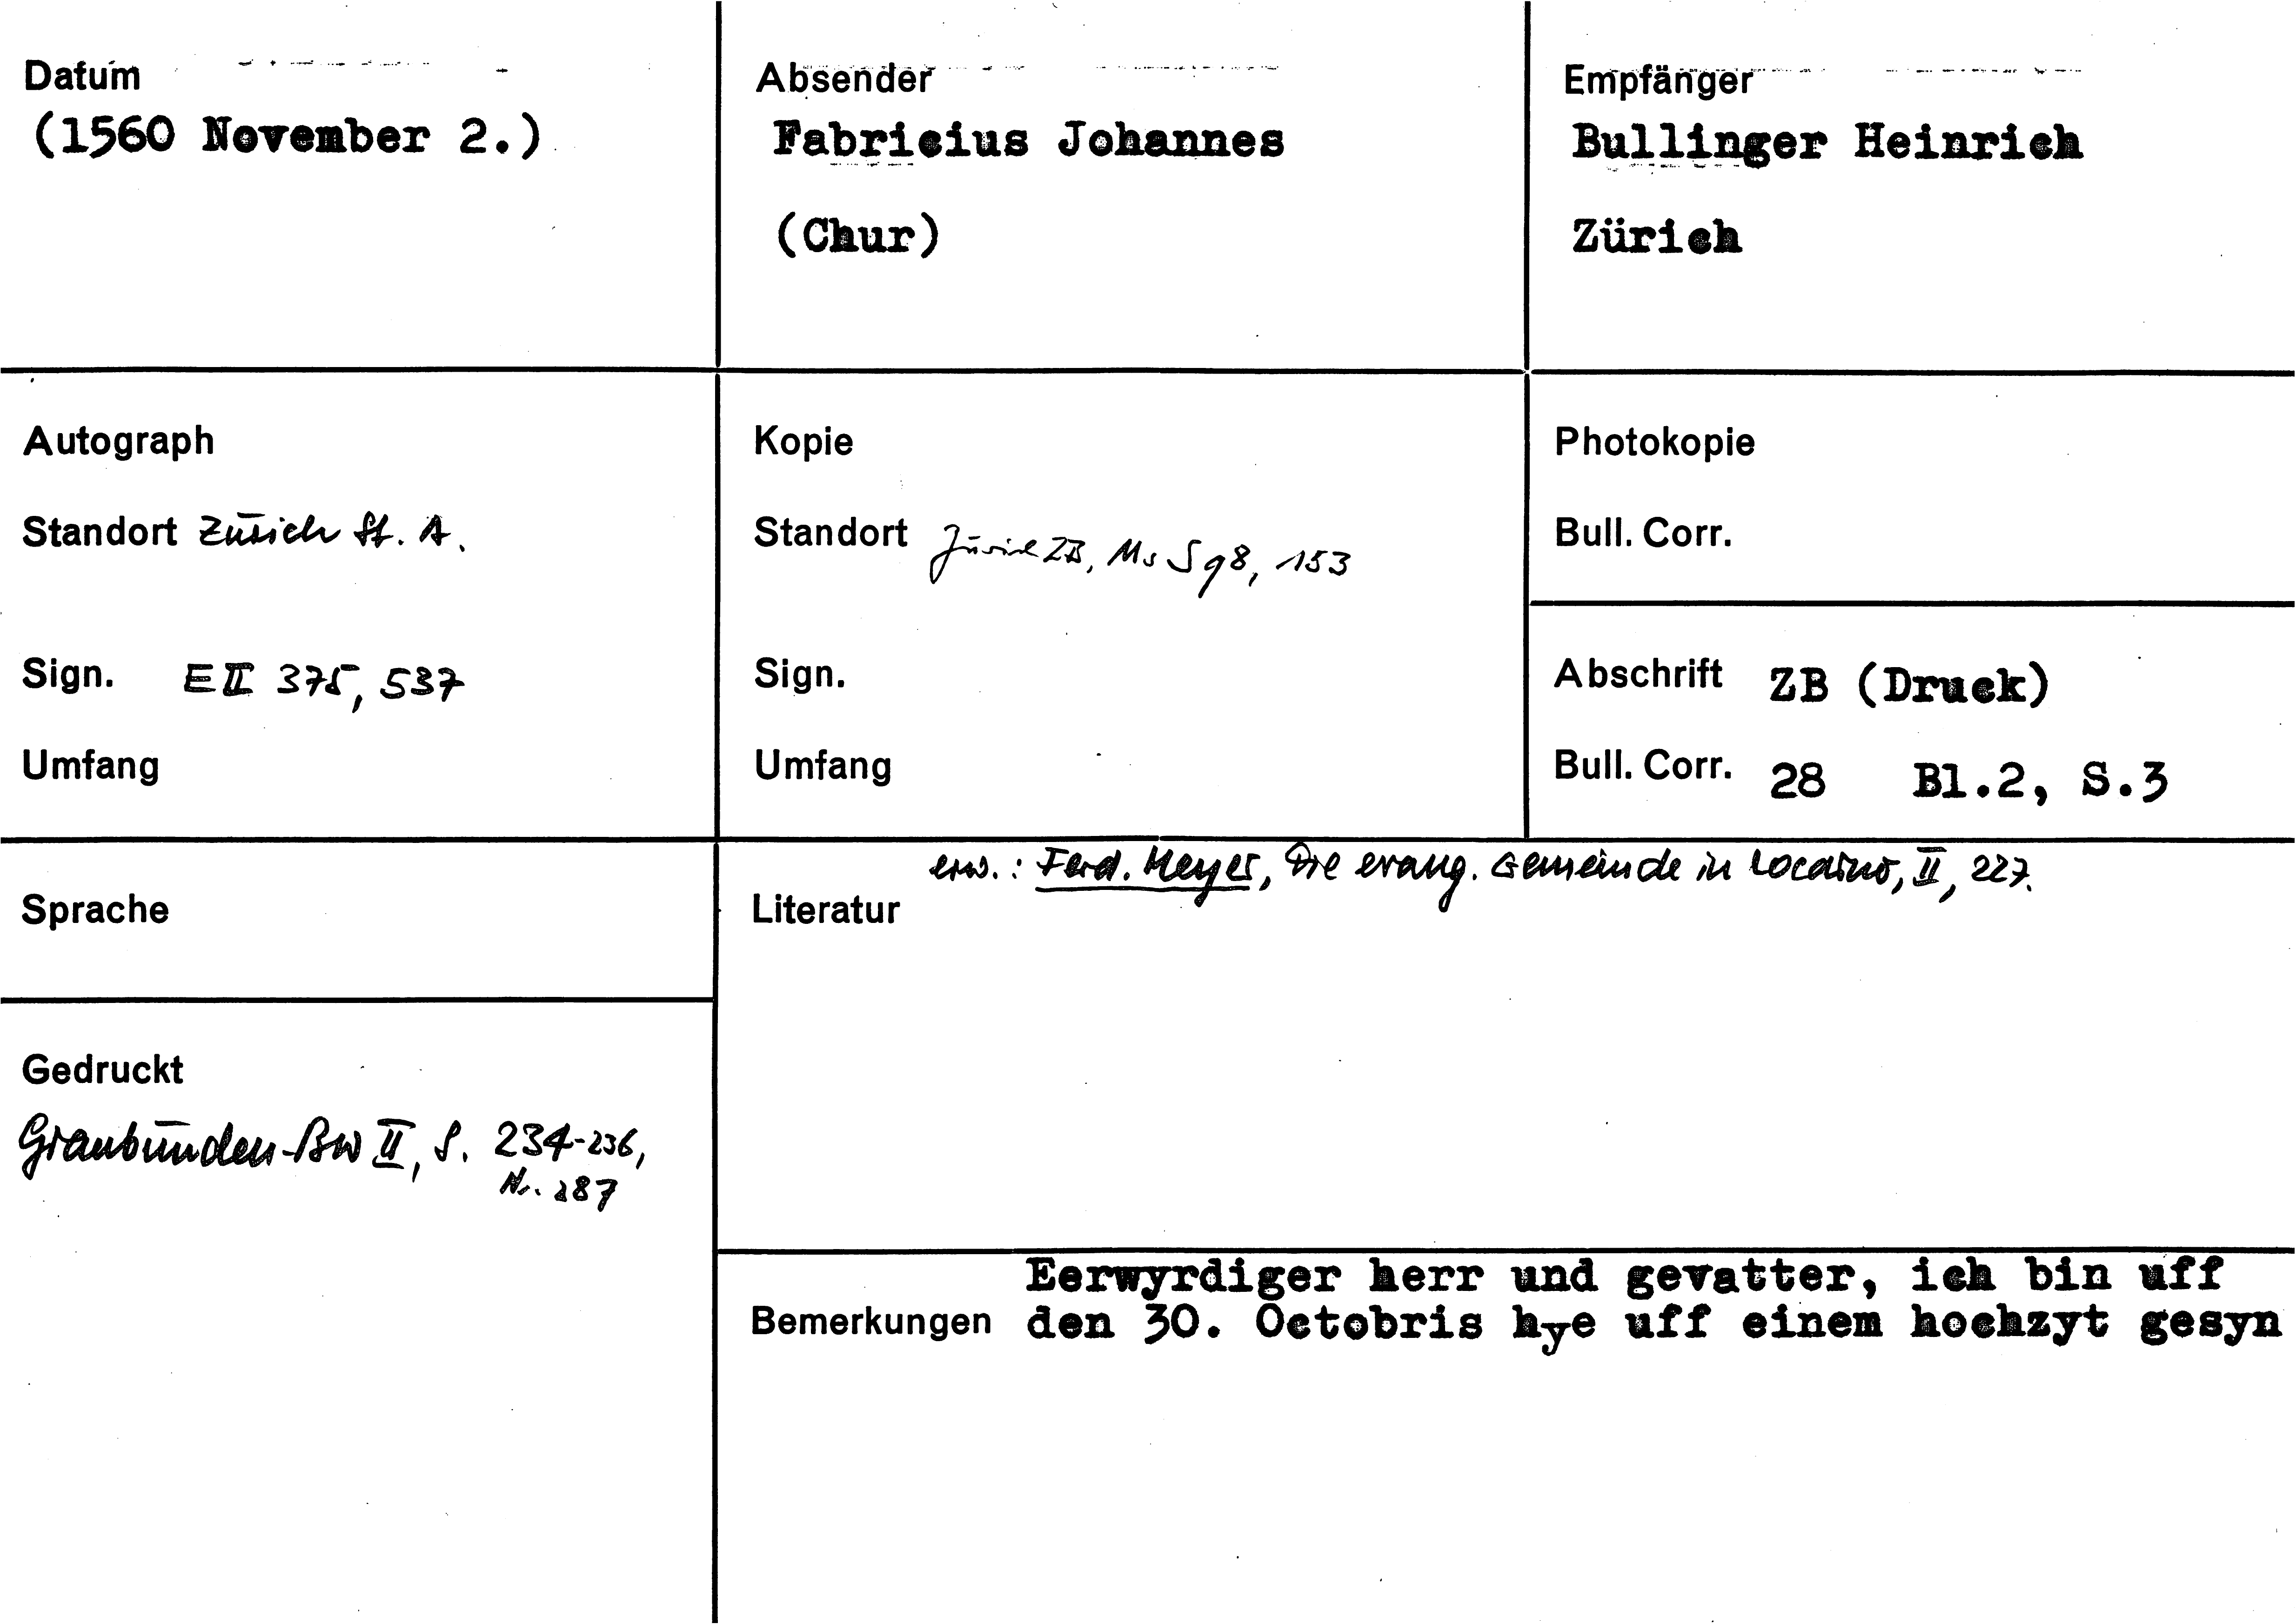 Datum
(1560 November 2.)
Absender
Fabricius Johannes
(Chur)
Empfänger
Bullinger Heinrich
Zürich
Autograph
Standort Zürich St. A.
Sign. E II 375, 537
Umfang
Kopie
Standort Zürich ZB, Ms S 98, 153
Sign.
Umfang
Photokopie
Bull. Corr.
Abschrift ZB (Druck)
Bull. Corr. 28 Bl.2, S.3
Sprache
Gedruckt
Graubünden-BW II, S. 234-236,
Nr. 287
erw.: Ferd. Meyer, Die evang. Gemeinde in Locarno, II, 227.
Literatur
Eerwyrdiger herr und gevatter, ich bin uff
Bemerkungen den 30. Octobris hye uff einem hochzyt gesyn